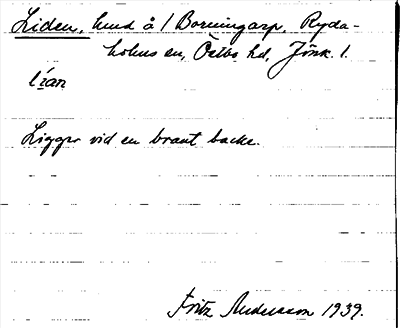 Liden, hmd å 1 Borningarp, Ryda-
holms sn, Östbo hd, Jönk. l.
lian
Ligger vid en brant backe.
Fritz Andersson 1939.